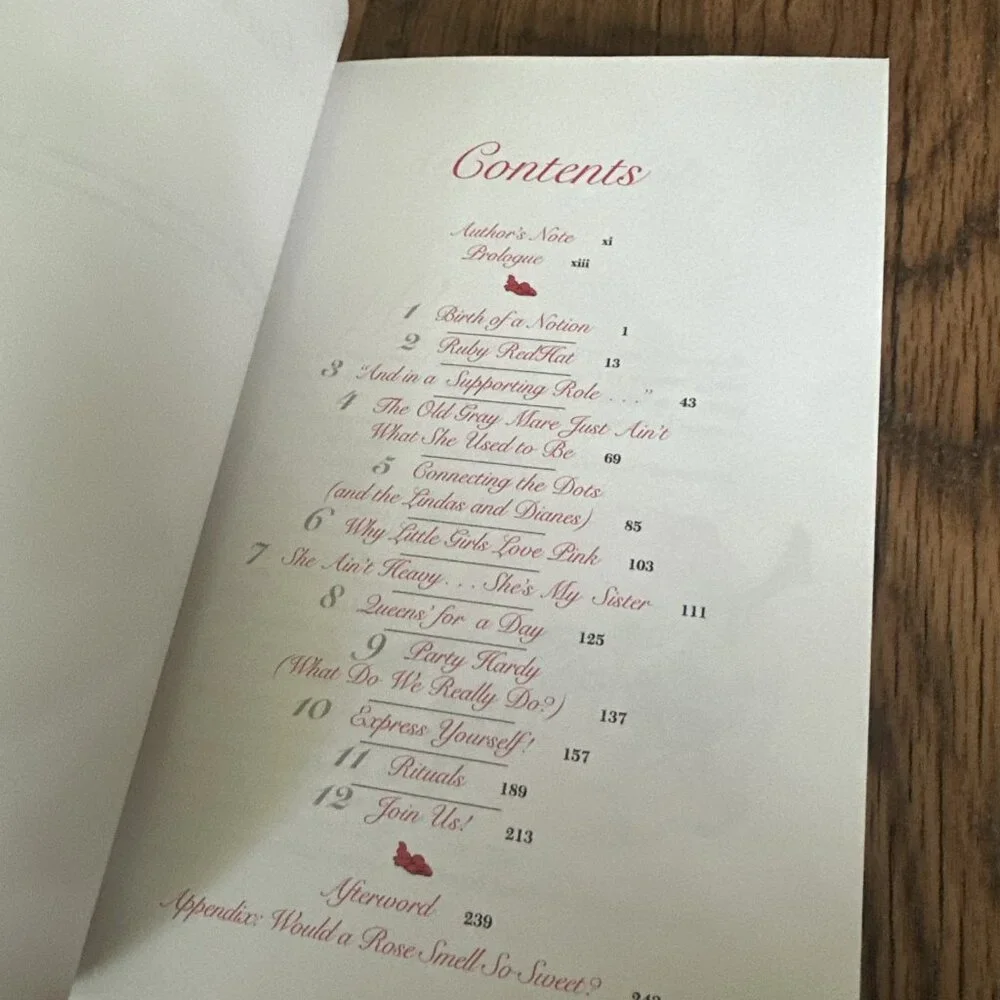 Contents
Author's Note xi
Prologue xiii
1 Birth of a Notion 1
2 Ruby RedHat 13
3 "And in a Supporting Role . . ." 43
4 The Old Gray Mare Just Ain't
What She Used to Be 69
5 Connecting the Dots
(and the Lindas and Dianes) 85
6 Why Little Girls Love Pink 103
7 She Ain't Heavy . . . She's My Sister 111
8 Queens for a Day 125
9 Party Hardy
(What Do We Really Do?) 137
10 Express Yourself! 157
11 Rituals 189
12 Join Us! 213
Afterword 239
Appendix: Would a Rose Smell So Sweet?